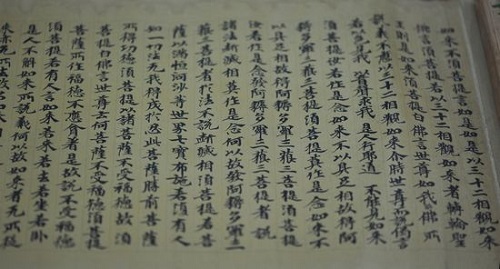 如來不須菩提言如是如是以三十二相觀如來
佛言須菩提若以三十二相觀如來者轉輪聖
王則是如來須菩提白佛言世尊如我解佛所
說義不應以三十二相觀如來尒時世尊而說偈言
以色見我 以音聲求我 是人行邪道 不能見如來
須菩提汝若作是念如來不以具足相故得阿
耨多羅三藐三菩提須菩提莫作是念如來不
以具足相故得阿耨多羅三藐三菩提須菩提
汝若作是念發阿耨多羅三藐三菩提者說
諸法斷滅相莫作是念何以故發阿耨多羅三
藐三菩提者於法不說斷滅相須菩提若菩
薩以滿恒河沙等世界七寶布施若有人
知一切法无我得成於忍此菩薩勝前菩薩
所得功德須菩提諸菩薩不受福德故須
菩提白佛言世尊云何菩薩不受福德須菩提
菩薩所作福德不應貪著是故說不受福德
須菩提若有人言如來若來若去若坐若卧
是人不解如來所說義何以故如來者无所從
來亦无所去故名如來